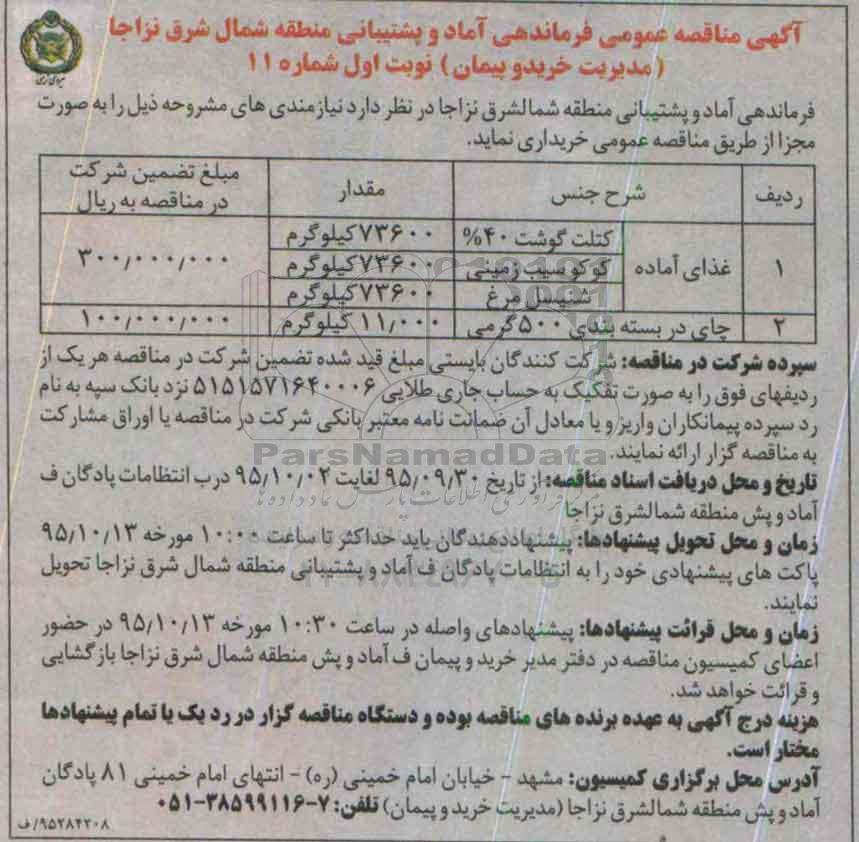 آگهی مناقصه عمومی فرماندهی آماد و پشتیبانی منطقه شمال شرق نزاجا
(مدیریت خریدو پیمان) نوبت اول شماره ۱۱
فرماندهی آماد و پشتیبانی منطقه شمالشرق نزاجا در نظر دارد نیازمندی های مشروحه ذیل را به صورت
مجزا از طریق مناقصه عمومی خریداری نماید.
ردیف شرح جنس مقدار مبلغ تضمین شرکت در مناقصه به ریال
۱ غذای آماده کتلت گوشت ۴۰% ۷۳۶۰۰کیلوگرم ۳۰۰٫۰۰۰٫۰۰۰
کوکو سیب زمینی ۷۳۶۰۰کیلوگرم
شنیسل مرغ ۷۳۶۰۰کیلوگرم
۲ چای در بسته بندی ۵۰۰گرمی ۱۱٫۰۰۰ کیلوگرم ۱۰۰٫۰۰۰٫۰۰۰
سپرده شرکت در مناقصه: شرکت کنندگان بایستی مبلغ قید شده تضمین شرکت در مناقصه هر یک از
ردیفهای فوق را به صورت تفکیک به حساب جاری طلایی ۵۱۵۱۵۷۱۶۴۰۰۰۶ نزد بانک سپه به نام
رد سپرده پیمانکاران واریز و یا معادل آن ضمانت نامه معتبر بانکی شرکت در مناقصه یا اوراق مشارکت
به مناقصه گزار ارائه نمایند.
ParsNamadData
تاریخ و محل دریافت اسناد مناقصه: از تاریخ ۹۵٫۰۹٫۳۰ لغایت ۹۵٫۱۰٫۰۲ درب انتظامات پادگان ف
آماد و پش منطقه شمالشرق نزاجا
زمان و محل تحویل پیشنهادها: پیشنهاددهندگان باید حداکثر تا ساعت ۱۰:۰۰ مورخه ۹۵٫۱۰٫۱۳
پاکت های پیشنهادی خود را به انتظامات پادگان ف آماد و پشتیبانی منطقه شمال شرق نزاجا تحویل
نمایند.
زمان و محل قرائت پیشنهادها: پیشنهادهای واصله در ساعت ۱۰:۳۰ مورخه ۹۵٫۱۰٫۱۳ در حضور
اعضای کمیسیون مناقصه در دفتر مدیر خرید و پیمان ف آماد و پش منطقه شمال شرق نزاجا بازگشایی
و قرائت خواهد شد.
هزینه درج آگهی به عهده برنده های مناقصه بوده و دستگاه مناقصه گزار در رد یک یا تمام پیشنهادها
مختار است.
آدرس محل برگزاری کمیسیون: مشهد - خیابان امام خمینی (ره) - انتهای امام خمینی ۸۱ پادگان
آماد و پش منطقه شمالشرق نزاجا (مدیریت خرید و پیمان) تلفن: ۷-۳۸۵۹۹۱۱۶-۰۵۱
۹۵۲۸۴۲۰۸/ف